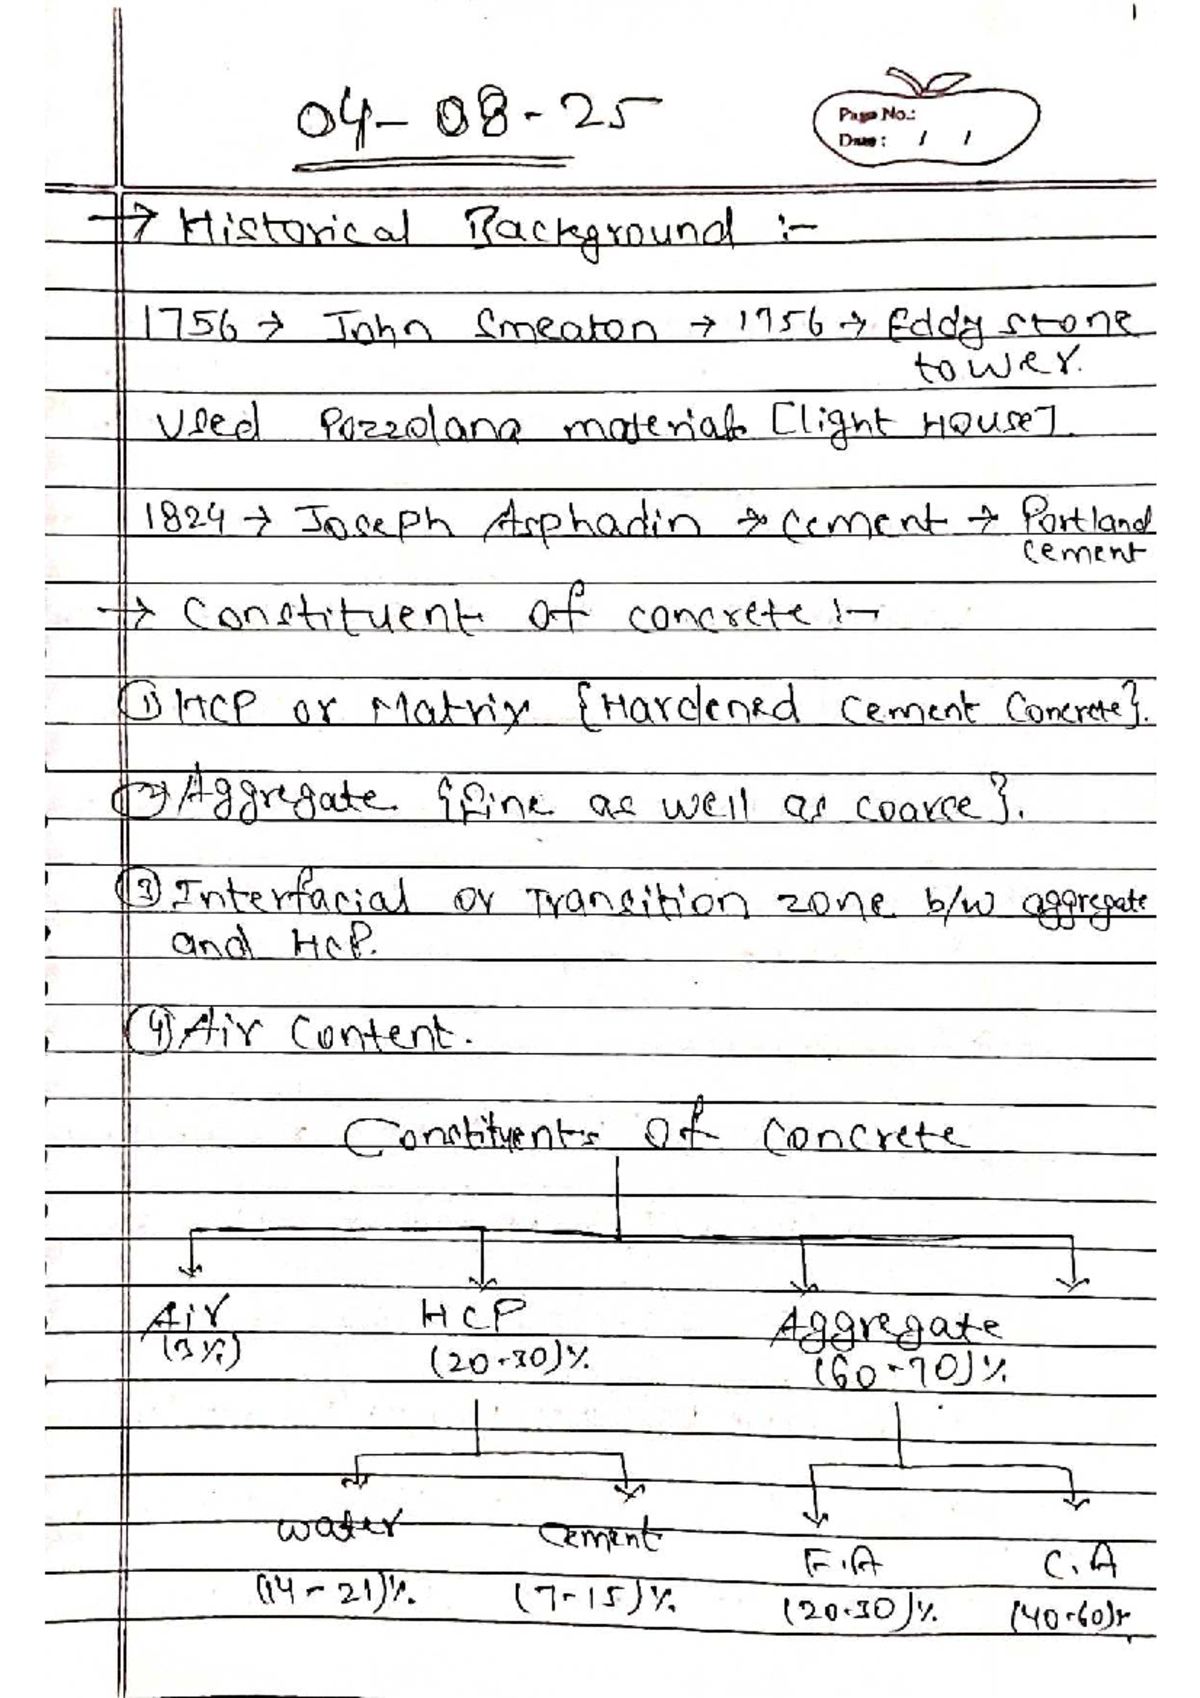 1
04-08-25
Page No.:
Date: / /
→ Historical Background :-
1756 → John Smeaton → 1756 → Eddy stone
tower.
Used Pozzolana materials [light House].
1824 → Joseph Asphadin → cement → Portland
cement
→ Constituent of concrete :-
① HCP or Matrix {Hardened cement Concrete}.
② Aggregate {fine as well as coarse}.
③ Interfacial or Transition zone b/w aggregate
and HCP.
④ Air Content.
Constituents of concrete
Air HCP Aggregate
(3%) (20-30)% (60-70)%
water cement F.A C.A
(14-21)% (7-15)% (20-30)% (40-60)%